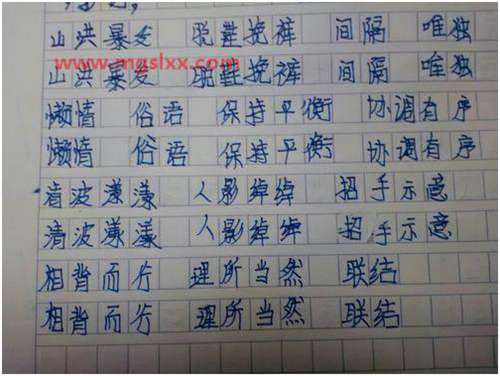 山洪暴发 脱鞋挽裤 间隔 唯独
www.mgslxx.com
山洪暴发 脱鞋挽裤 间隔 唯独
懒惰 俗语 保持平衡 协调有序
懒惰 俗语 保持平衡 协调有序
清波漾漾 人影绰绰 招手示意
清波漾漾 人影绰绰 招手示意
相背而行 理所当然 联结
相背而行 理所当然 联结